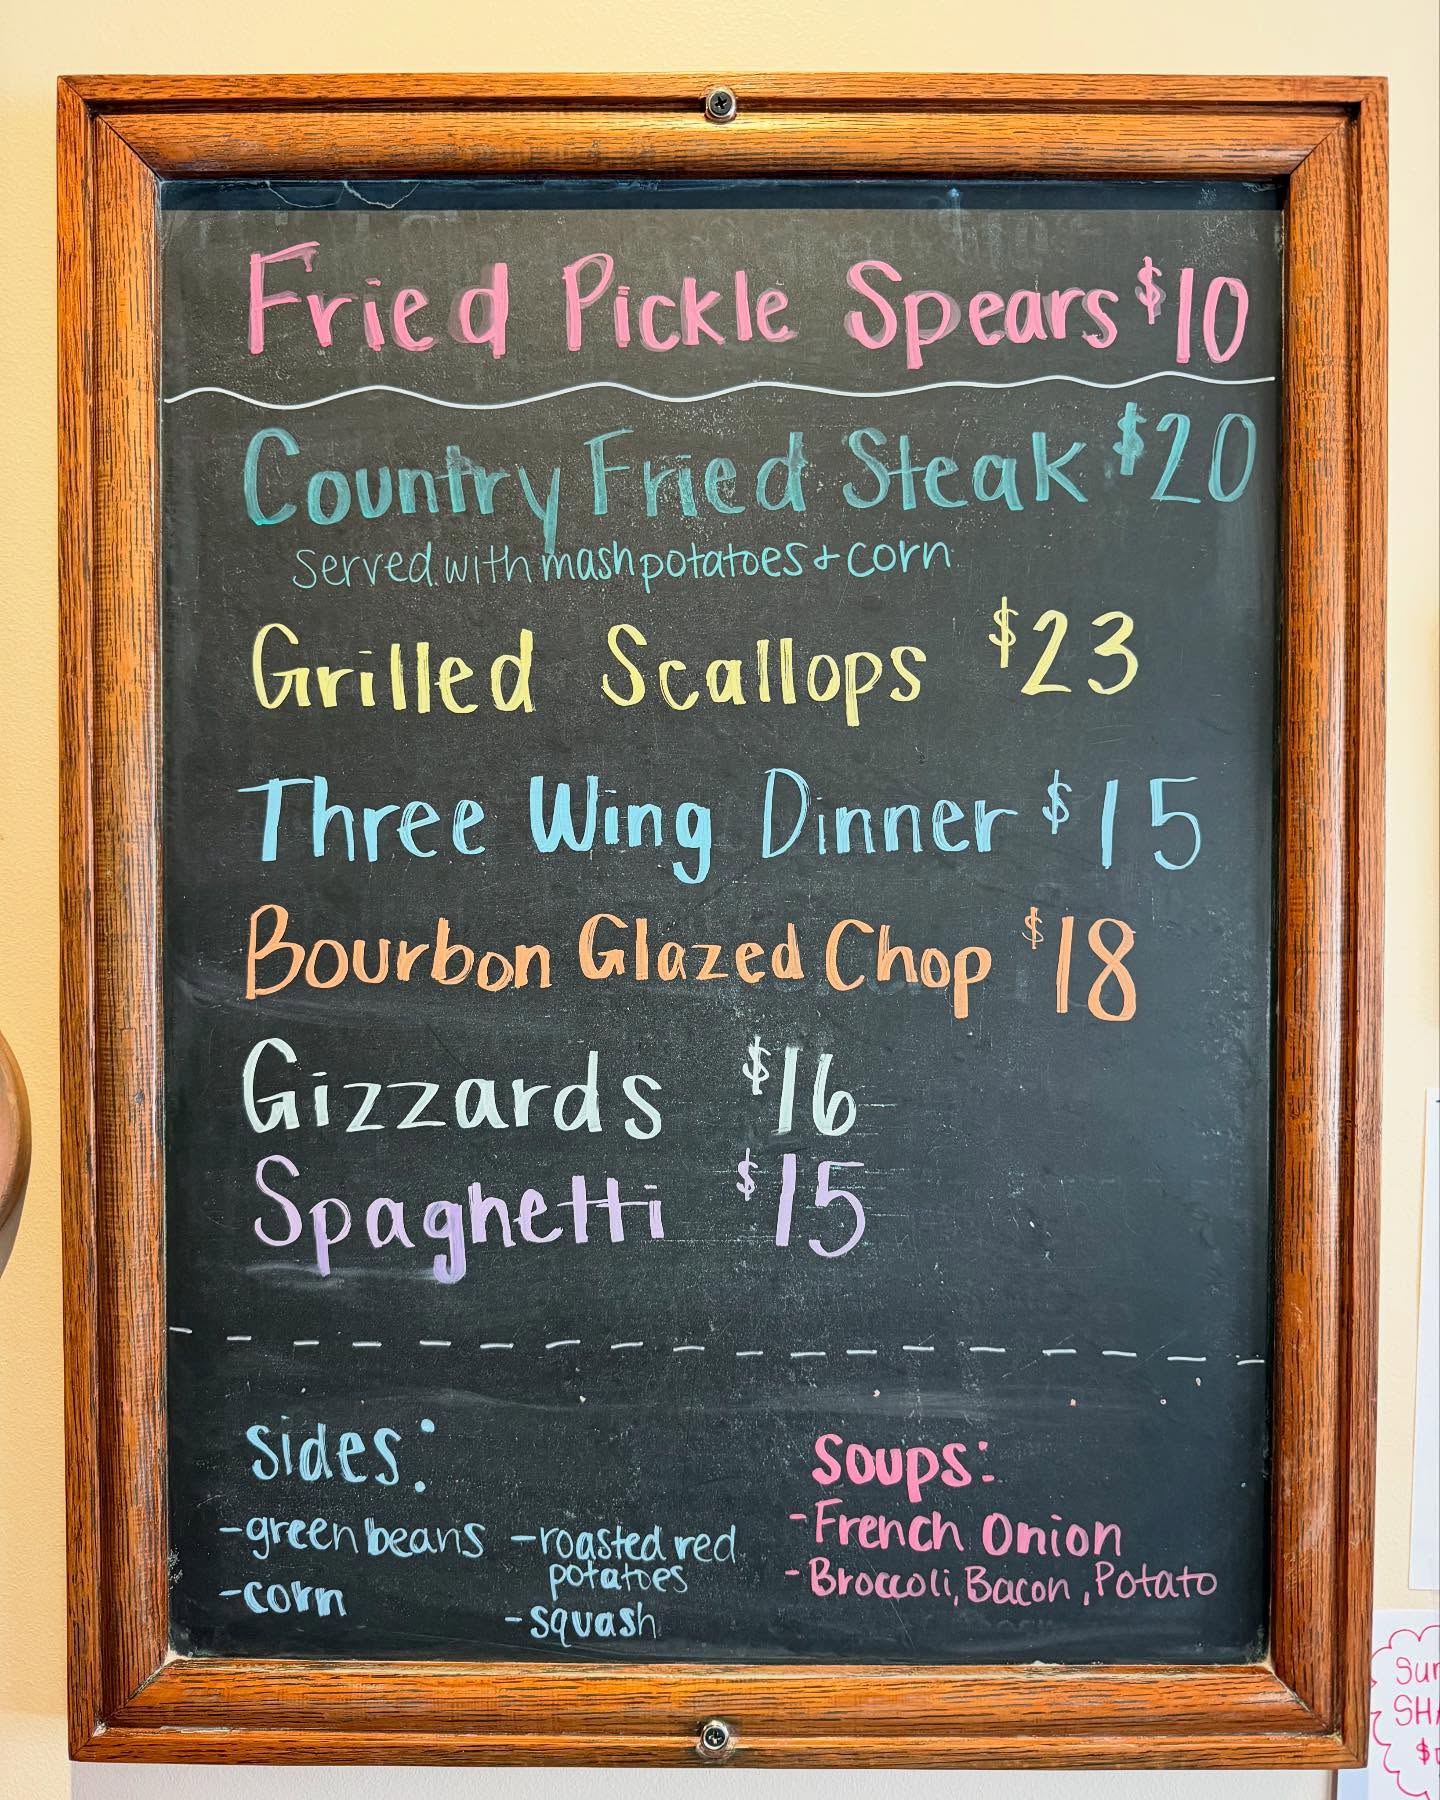 Fried Pickle Spears $10
Country Fried Steak $20
served with mash potatoes + corn
Grilled Scallops $23
Three Wing Dinner $15
Bourbon Glazed Chop $18
Gizzards $16
Spaghetti $15
Sides:
- green beans
- corn
- roasted red
potatoes
- squash
Soups:
- French Onion
- Broccoli, Bacon, Potato